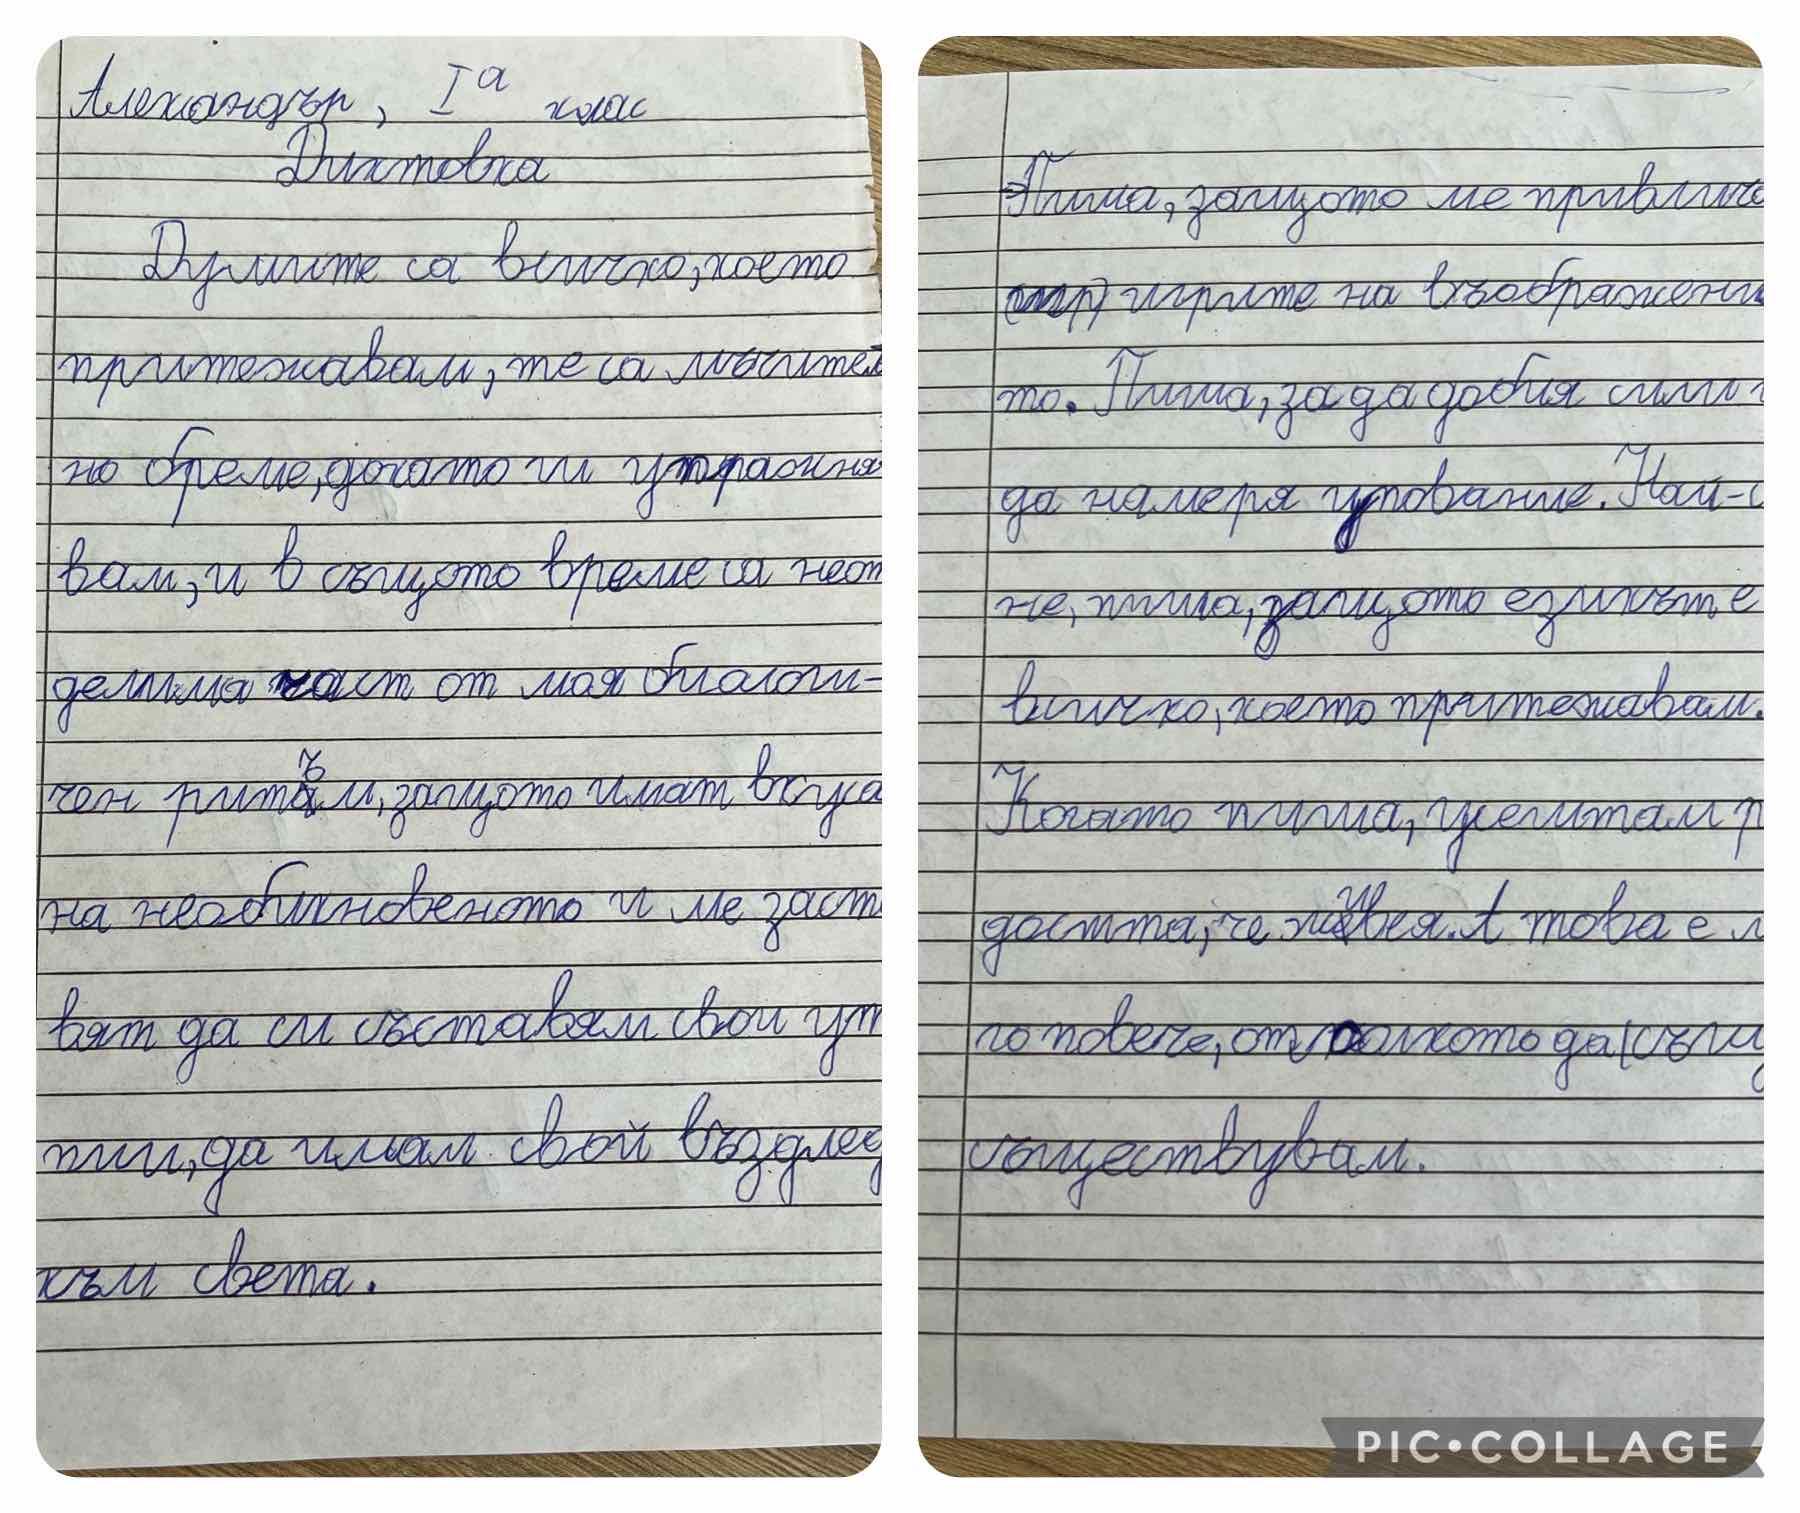 Александър, Iа клас
Диктовка
Думите са всичко, което
притежавам, те са мъчител
но бреме, докато ги упражня
вам, и в същото време са неот
делима част от моя биологи-
чен ритъм, защото имат вкуса
на необикновеното и ме заст
вят да си съставям свои ут
пии, да имам свой възглед
към света.
Пиша, защото ме привлича
игрите на въображени
то. Пиша, за да добия сили и
да намеря упование. Най-с
не, пиша, защото езикът е
всичко, което притежавам.
Когато пиша, усещам р
достта, че живея. А това е м
го повече, от колкото да (същ
съществувам.
PIC•COLLAGE